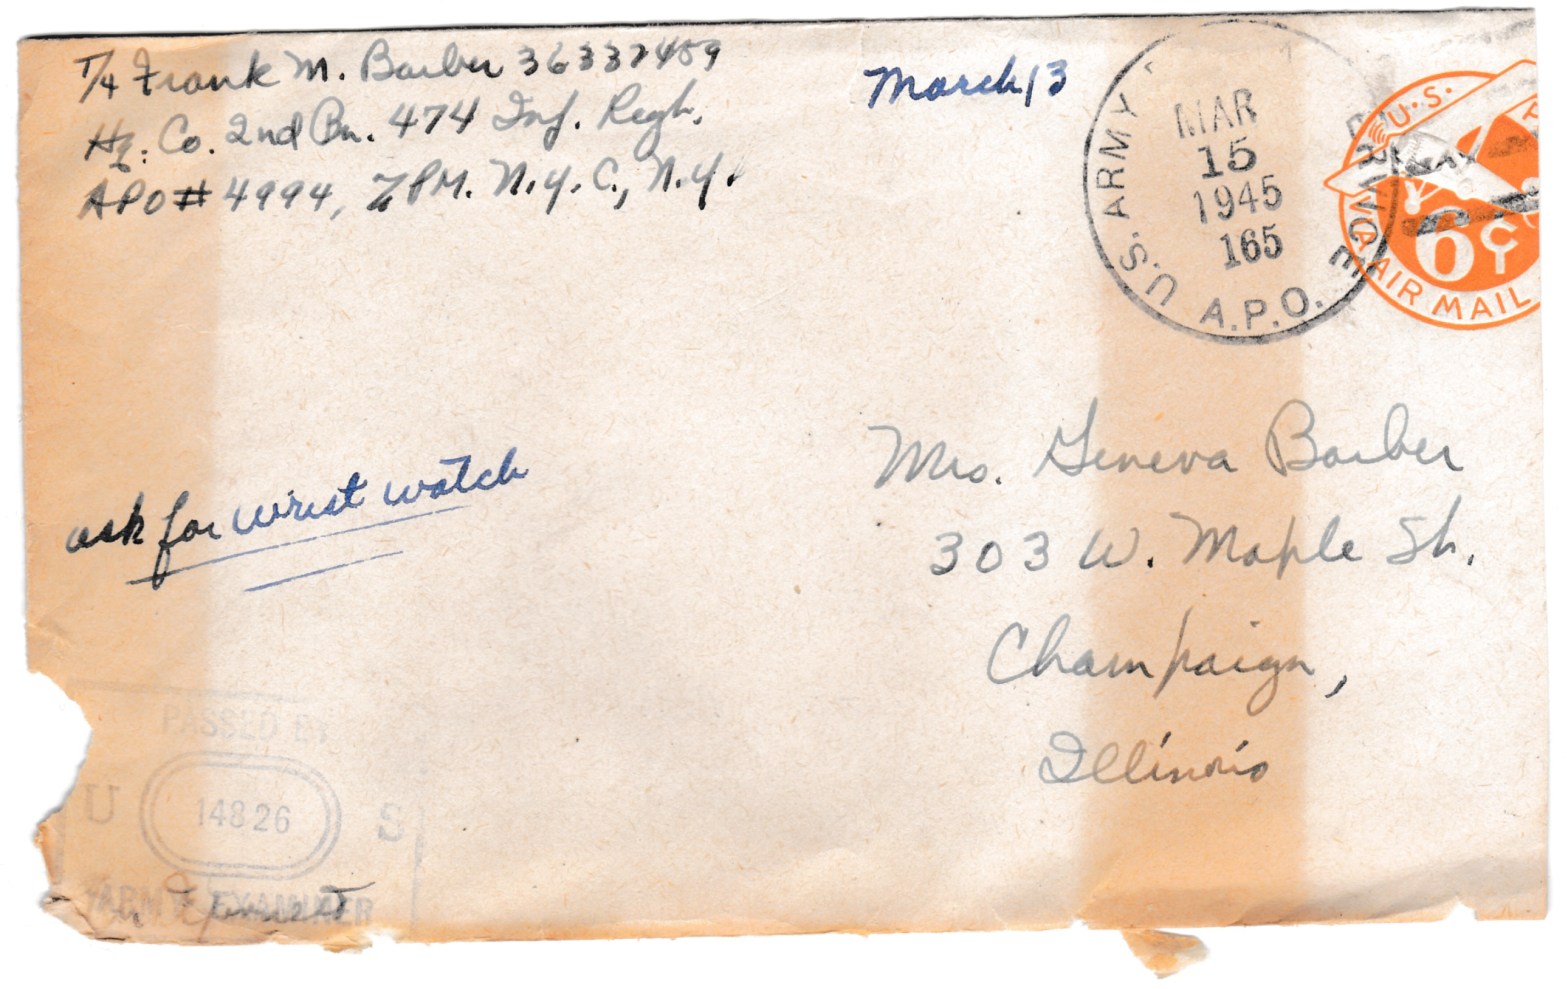 T/4 Frank M. Barber 36337459
Hq. Co. 2nd Bn. 474 Inf. Regt.
APO# 4994, % PM. N.Y.C., N.Y.
March 13
U.S. ARMY
MAR
15
1945
165
A.P.O.
U.S.
6¢
VIA AIR MAIL
ask for wrist watch
Mrs. Geneva Barber
303 W. Maple St.
Champaign,
Illinois
PASSED BY
U 14826 S
ARMY EXAMINER